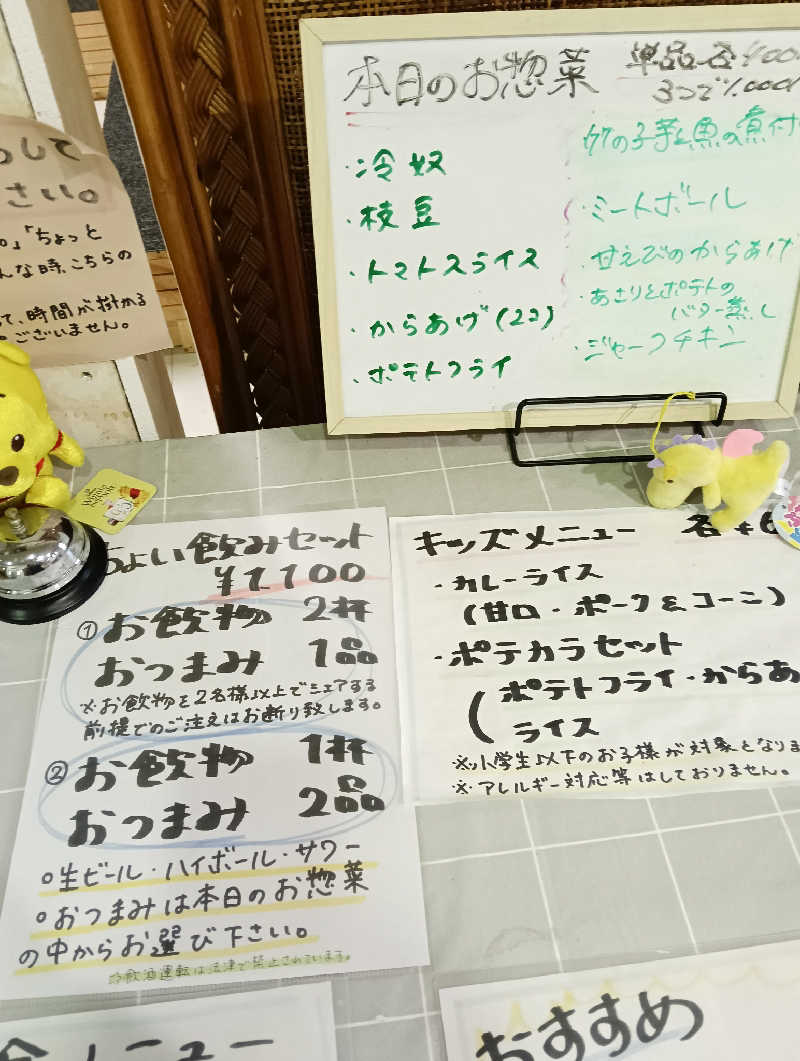 して
さい。
」「ちょっと
な時、こちらの
て、時間が掛かる
ございません。
本日のお惣菜
単品 各¥400
3つで1,000
・冷奴
・枝豆
・トマトスライス
・からあげ(2コ)
・ポテトフライ
の子芋と魚の煮付
・ミートボール
・甘えびのからあげ
・あさりとポテトの
バター蒸し
・ジャークチキン
ちょい飲みセット
¥1100
①お飲物 2杯
おつまみ 1品
※お飲物を2名様以上でシェアする
前提でのご注文はお断り致します。
②お飲物 1杯
おつまみ 2品
○生ビール・ハイボール・サワー
○おつまみは本日のお惣菜
の中からお選び下さい。
飲酒運転は法律で禁止されています。
キッズメニュー 各¥6
・カレーライス
(甘口・ポーク&コーン)
・ポテカラセット
(ポテトフライ・からあ
ライス
※小学生以下のお子様が対象となりま
※アレルギー対応等はしておりません。
メニュー
おすすめ